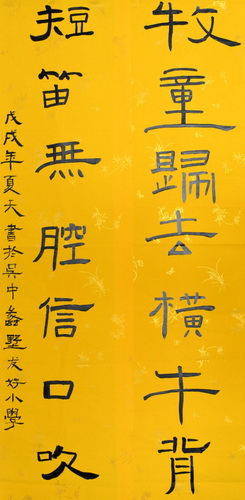 牧童歸去橫牛背
短笛無腔信口吹
戊戌年夏天書於吳中蠡墅友好小學